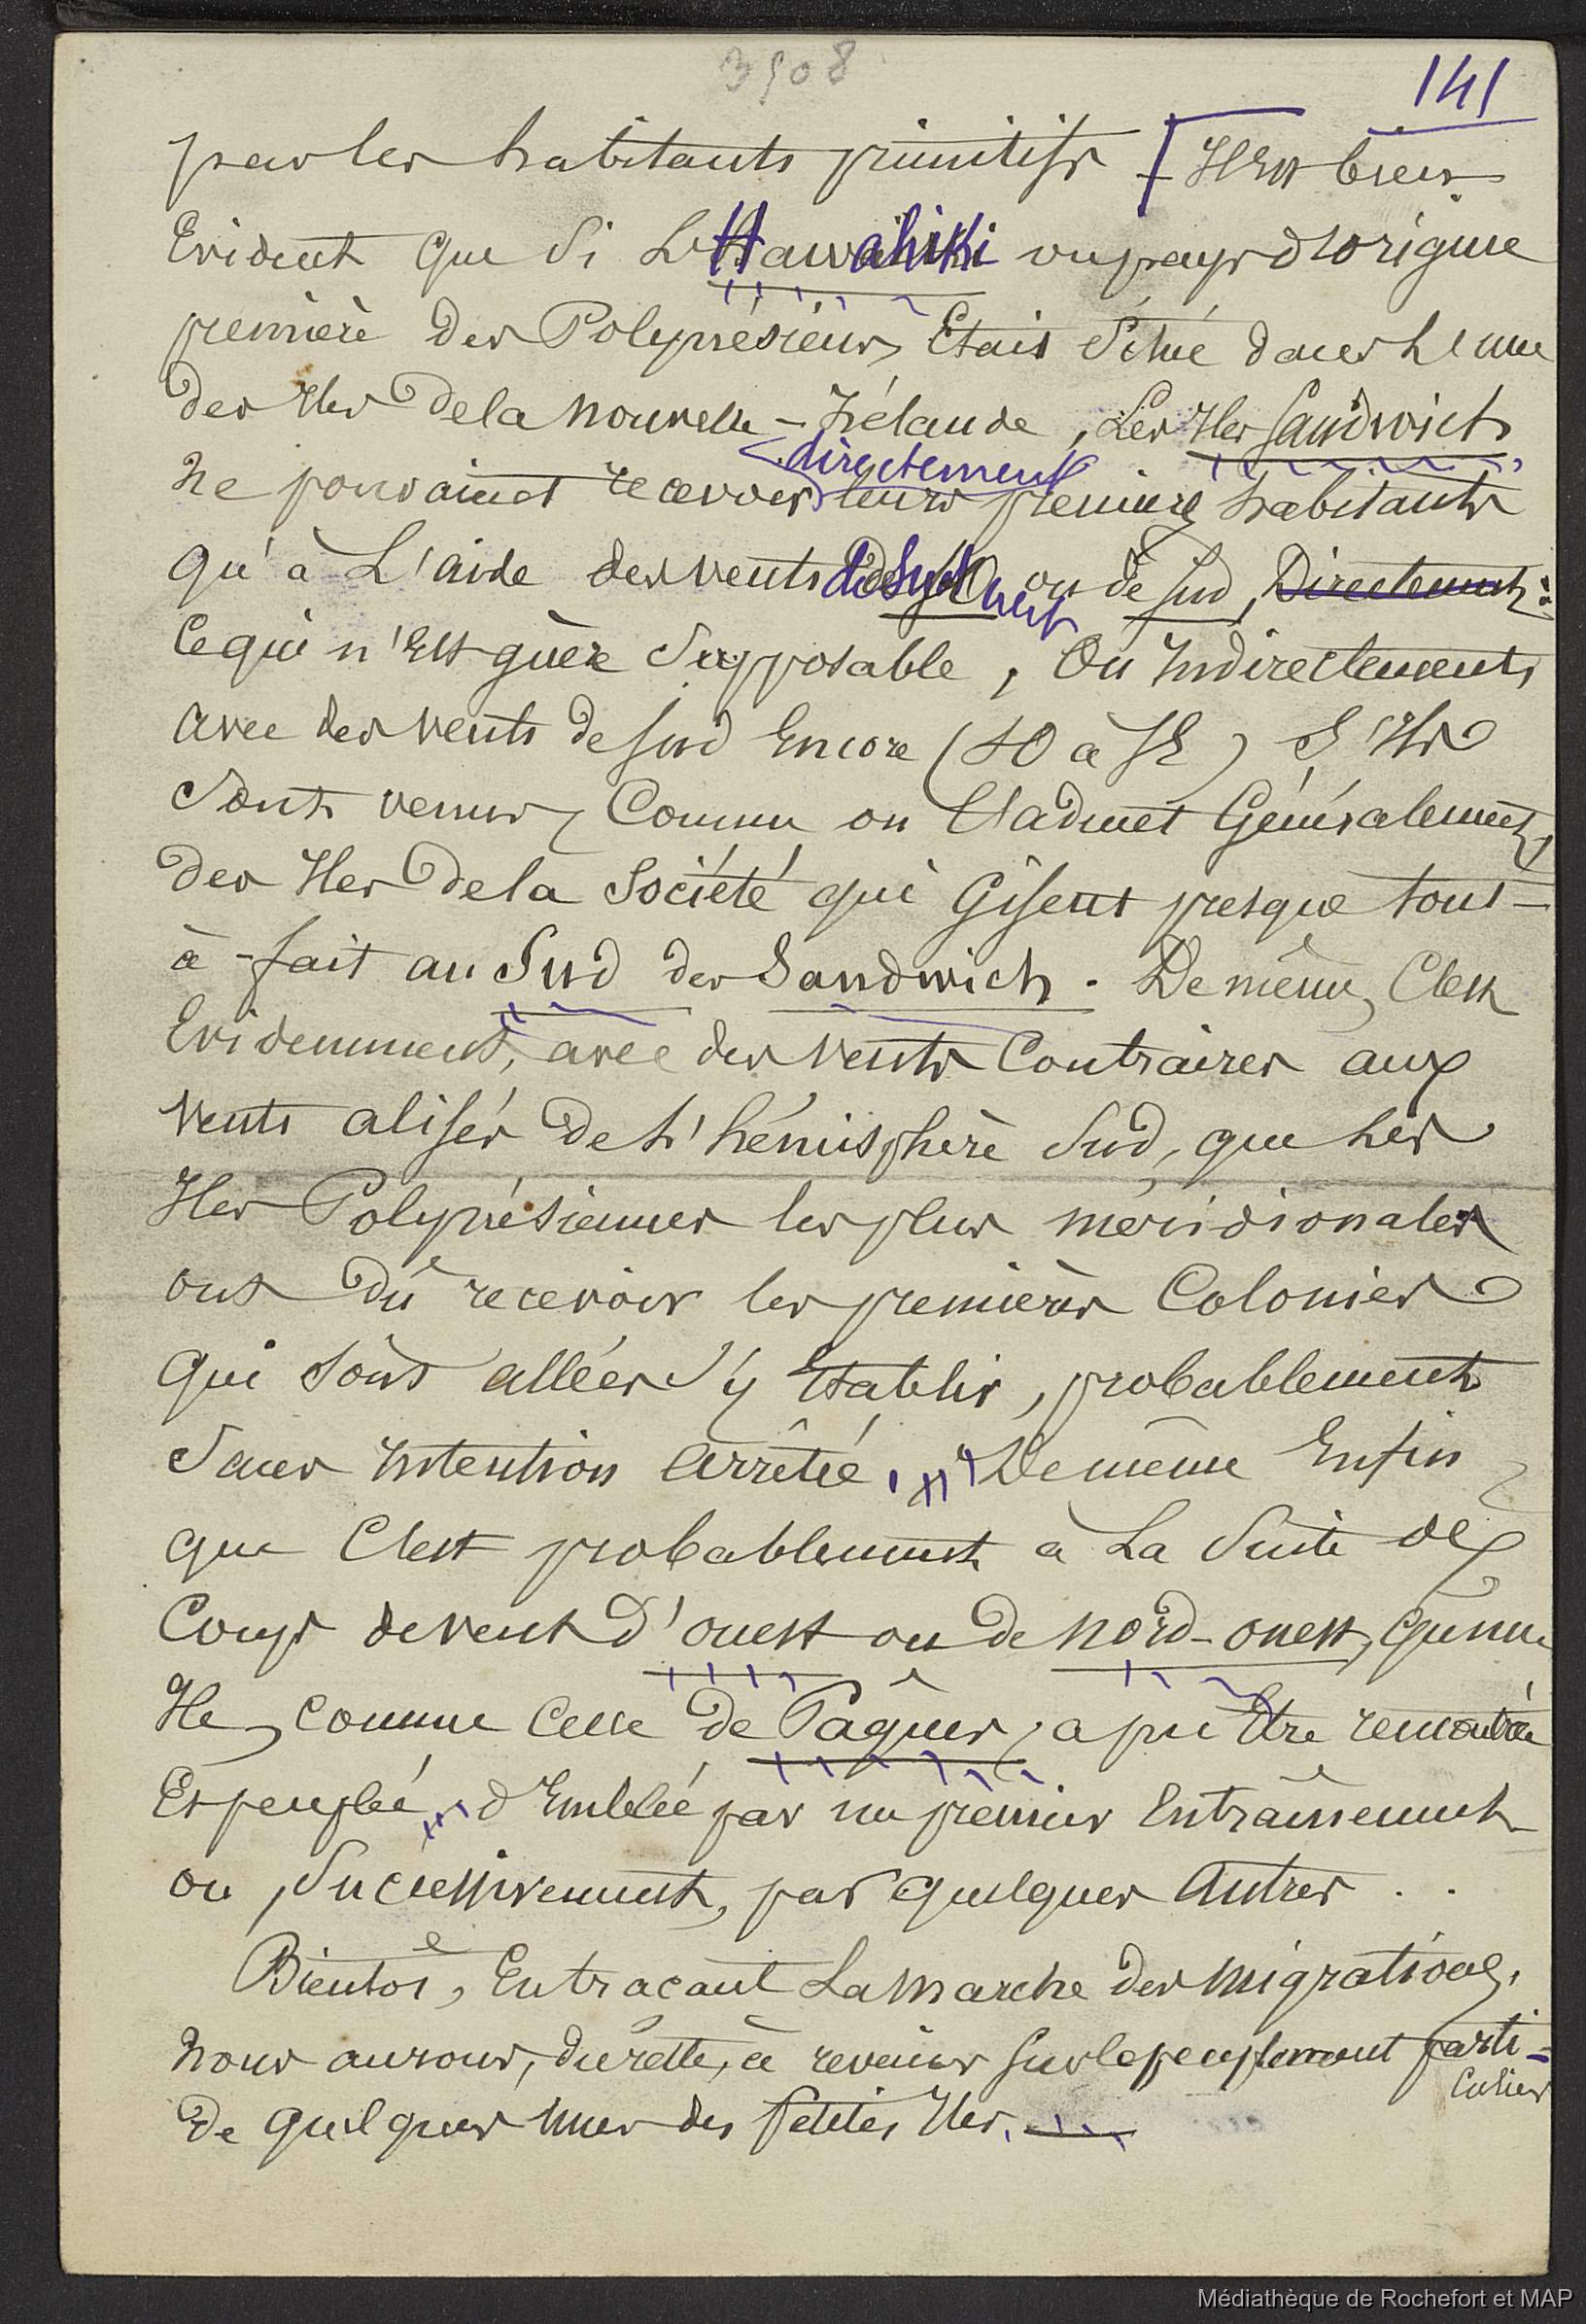 3508
141
par les habitants primitifs - [ Il est bien
Evident que si L'Hawahiki ou pays d'origine
première des Polynésiens, Etait Situé dans l'une
des Iles de la Nouvelle-Zélande, Les Iles Sandwich
ne pouvaient recevoir directement leurs premiers habitants
qu'à L'aide des vents de Sud Ouest ou de Sud, Directement :
Ce qui n'Est guère Supposable, Ou Indirectement
avec des vents de Sud Encore (SO à SE) S'Ils
Sont venus, Comme on l'admet Généralement,
des Iles de la Société qui Gisent presque tout-
à-fait au Sud des Sandwich. De même, C'est
Evidemment, avec des vents Contraires aux
vents alisés de l'hémisphère Sud, que les
Iles Polynésiennes les plus méridionales
ont dû recevoir les premières Colonies
qui sont allées s'y Etablir, probablement
Sans Intention arrêtée. De même Enfin
que C'est probablement à La Suite de
Coups de vent d'ouest ou de nord-ouest, qu'une
Ile, comme Celle de Pâques, a pu Etre rencontrée
Et peuplée, d'Emblée par un premier Entraînement
ou, Successivement, par quelques Autres . .
Bientôt, En traçant La Marche des Migrations,
nous aurons, du reste, à revenir sur le peuplement parti-
culier
de quelques unes des petites Iles. —
Médiathèque de Rochefort et MAP